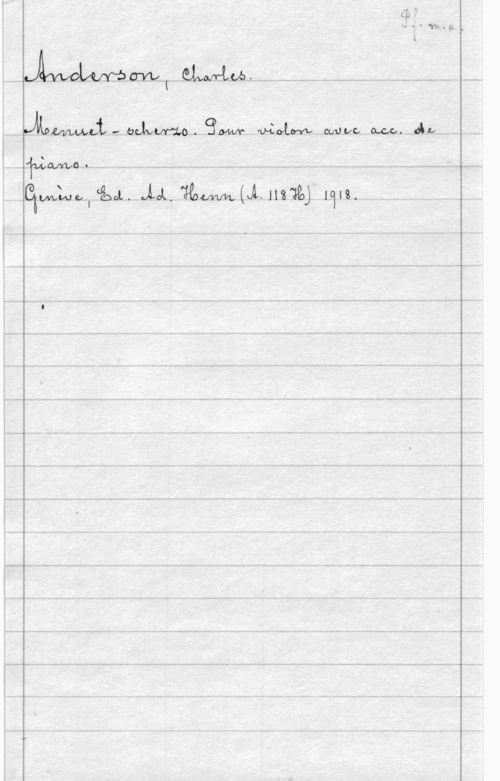 Pf. m. a.
Anderson, Charles.
Menuet-scherzo. Pour violon avec acc. de
piano.
Genève, Ed. Ad. Henn (A. 118 H) 1918.